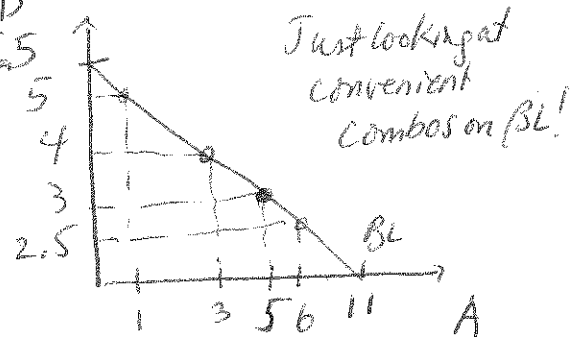 B
5.5
5
4
3
2.5
Just looking at
convenient
combos on BL!
BL
1 3 5 6 11 A